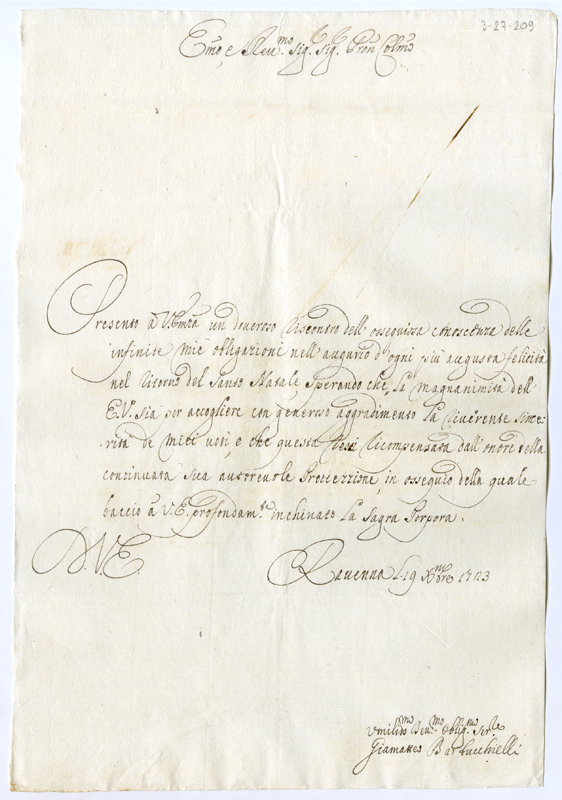 3-27-209
Emo, e Reu.mo Sig. Sig. Pron Colmo
Presento à V. Emza un doueroso riscontro dell'ossequiosa conoscenza delle
infinite mie obligazioni nell'augurio d'ogni più augusta felicità
nel ritorno del Santo Natale, Sperando che la magnanimità dell'
E. V. sia per accogliere con generoso aggradimento la riuerente since-
-rità de miei uoti, e che questa resti ricompensata dall'onore della
continuata sua autoreuole Protezzione, in ossequio della quale
baccio à V. E. profondam.te inchinato la Sagra Porpora.
D. V. E.
Rauenna li 19 Xmbre 1723
Vmilissmo Deu.mo Oblig.mo Ser.re
Giamatteo